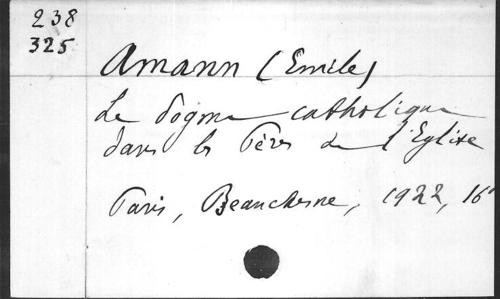 238
325
Amann (Emile)
Le dogme catholique
dans les Pères de l'Eglise
Paris, Beauchesne, 1922, 16°